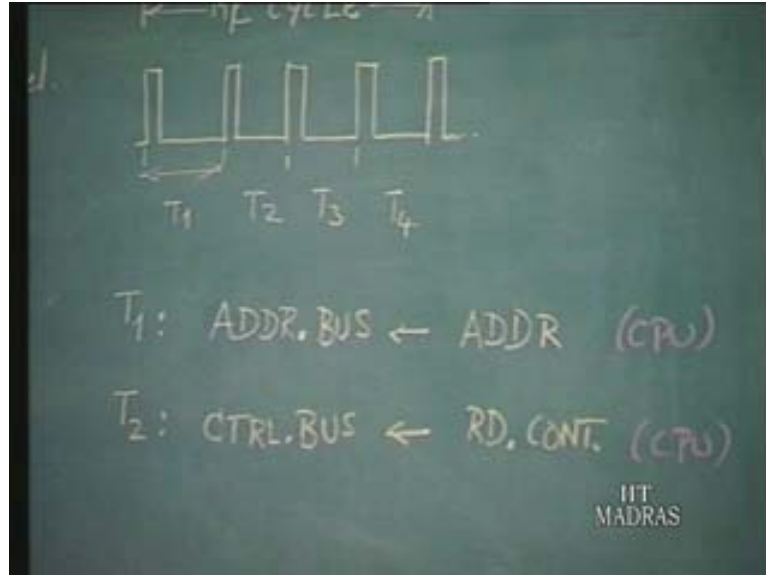 CYCLE
T1 T2 T3 T4
T1: ADDR.BUS ← ADDR (CPU)
T2: CTRL.BUS ← RD.CONT. (CPU)
IIT
MADRAS